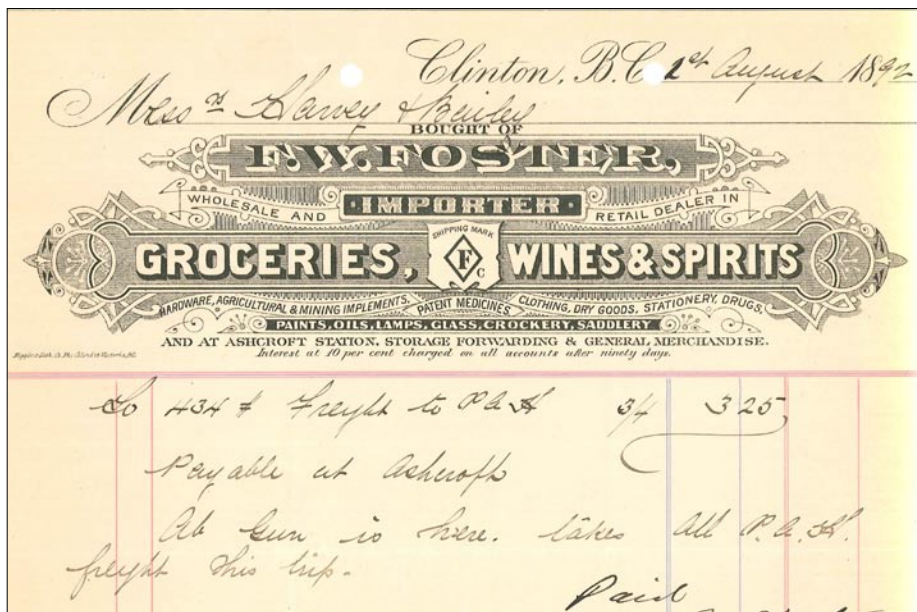 Clinton, B.C. 1st August 1892
Messrs Harvey & Bailey
BOUGHT OF
F.W. FOSTER,
WHOLESALE AND IMPORTER RETAIL DEALER IN
SHIPPING MARK
GROCERIES, F C WINES & SPIRITS
HARDWARE, AGRICULTURAL & MINING IMPLEMENTS. PATENT MEDICINES CLOTHING, DRY GOODS, STATIONERY, DRUGS,
PAINTS, OILS, LAMPS, GLASS, CROCKERY, SADDLERY
AND AT ASHCROFT STATION, STORAGE FORWARDING & GENERAL MERCHANDISE.
Interest at 10 per cent charged on all accounts after ninety days.
To 434 # Freight to P A H 3/4 3 25
Payable at Ashcroft
Ah Gun is here. takes all P.A.H.
freight this trip.
Paid